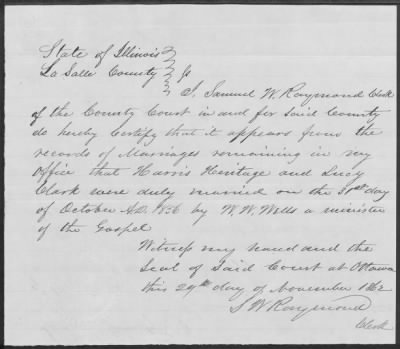 State of Illinois
La Salle County } ss
I, Samuel W. Raymond Clerk
of the County Court in and for Said County
do hereby Certify that it appears from the
records of Marriages remaining in my
Office that Harris Heritage and Lucy
Clark were duly married on the 31st day
of October A.D. 1856 by W. W. Wells a minister
of the Gospel
Witness my hand and the
Seal of Said Court at Ottawa
this 29th day of November 1862
S W Raymond
Clerk